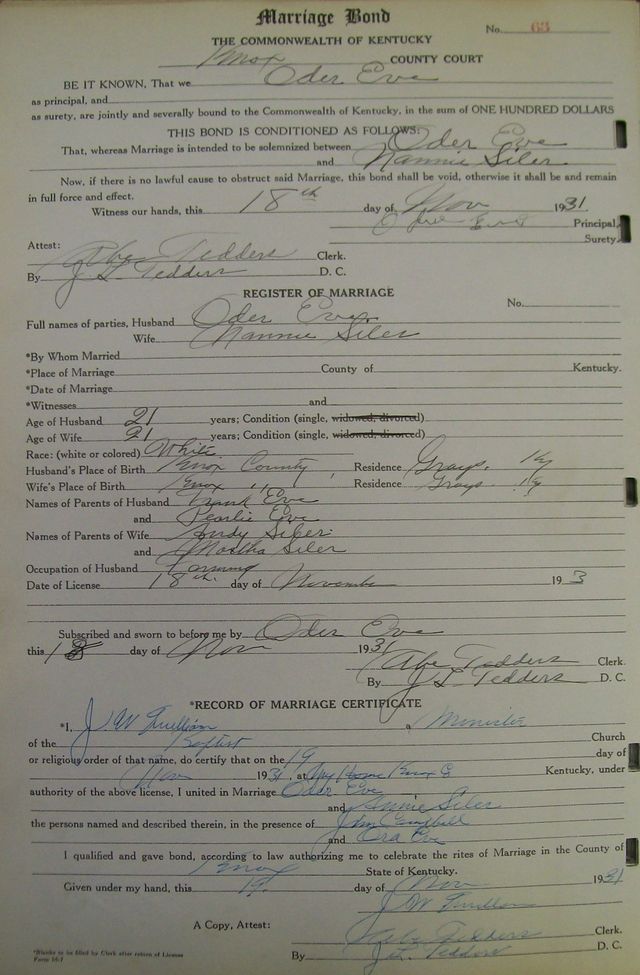 Marriage Bond
No. 63
THE COMMONWEALTH OF KENTUCKY
Knox COUNTY COURT
BE IT KNOWN, That we Oder Eve
as principal, and
as surety, are jointly and severally bound to the Commonwealth of Kentucky, in the sum of ONE HUNDRED DOLLARS
THIS BOND IS CONDITIONED AS FOLLOWS:
That, whereas Marriage is intended to be solemnized between Oder Eve
and Nannie Siler
Now, if there is no lawful cause to obstruct said Marriage, this bond shall be void, otherwise it shall be and remain
in full force and effect.
Witness our hands, this 18th day of Nov 1931
Oder Eve Principal,
Surety.
Attest:
Abe Tedders Clerk.
By J. L. Tedders D. C.
REGISTER OF MARRIAGE
No.
Full names of parties, Husband Oder Eve,
Wife Nannie Siler
*By Whom Married
*Place of Marriage County of Kentucky.
*Date of Marriage
*Witnesses and
Age of Husband 21 years; Condition (single, widowed, divorced)
Age of Wife 21 years; Condition (single, widowed, divorced)
Race: (white or colored) White
Husband's Place of Birth Knox County, Residence Grays. Ky
Wife's Place of Birth Knox ,, Residence Grays. Ky
Names of Parents of Husband Frank Eve
and Pearlie Eve
Names of Parents of Wife Andy Siler
and Martha Siler
Occupation of Husband Farming
Date of License 18th. day of November 193
Subscribed and sworn to before me by Oder Eve
this 18 day of Nov 1931
Abe Tedders Clerk.
By J L Tedders D. C.
*RECORD OF MARRIAGE CERTIFICATE
*I, J. W. a Minister
of the Baptist Church
or religious order of that name, do certify that on the 19 day of
Nov 1931, at My Home Knox Co Kentucky, under
authority of the above license, I united in Marriage Oder Eve
and Annie Siler
the persons named and described therein, in the presence of John Campbell
and Ora Eve
I qualified and gave bond, according to law authorizing me to celebrate the rites of Marriage in the County of
Knox State of Kentucky.
Given under my hand, this 19 day of Nov 1931
J. W.
A Copy, Attest: Abe Tedders Clerk.
By J. L. Tedders D. C.
*Blanks to be filled by Clerk after return of License